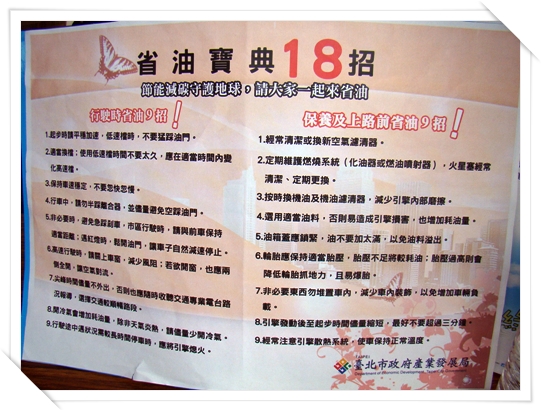 省油寶典18招
節能減碳守護地球，請大家一起來省油
行駛時省油9招！
1.起步時請平穩加速，低速檔時，不要猛踩油門。
2.適當換檔：使用低速檔時間不要太久，應在適當時間內變
化高速檔。
3.保持車速穩定，不要忽快忽慢。
4.行車中，請勿半踩離合器，並儘量避免空踩油門。
5.非必要時，避免急踩剎車，市區行駛時，請與前車保持
適當距離；遇紅燈時，鬆開油門，讓車子自然減速停止。
6.高速行駛時，請關上車窗，減少風阻；若欲開窗，也應兩
側全開，讓空氣對流。
7.尖峰時間儘量不外出，否則也應隨時收聽交通專業電台路
況報導，選擇交通較順暢路段。
8.開冷氣會增加耗油量，除非天氣炎熱，請儘量少開冷氣。
9.行駛途中遇狀況需較長時間停車時，應將引擎熄火。
保養及上路前省油9招！
1.經常清潔或換新空氣濾清器。
2.定期維護燃燒系統（化油器或燃油噴射器），火星塞經常
清潔、定期更換。
3.按時換機油及機油濾清器，減少引擎內部磨擦。
4.選用適當油料，否則易造成引擎損害，也增加耗油量。
5.油箱蓋應鎖緊，油不要加太滿，以免油料溢出。
6.輪胎應保持適當胎壓，胎壓不足將較耗油；胎壓過高則會
降低輪胎抓地力，且易爆胎。
7.非必要東西勿堆置車內，減少車內裝飾，以免增加車輛負
載。
8.引擎發動後至起步時間儘量縮短，最好不要超過三分鐘。
9.經常注意引擎散熱系統，使車保持正常溫度。
TAIPEI
臺北市政府產業發展局
Department of Economic Development, Taipei